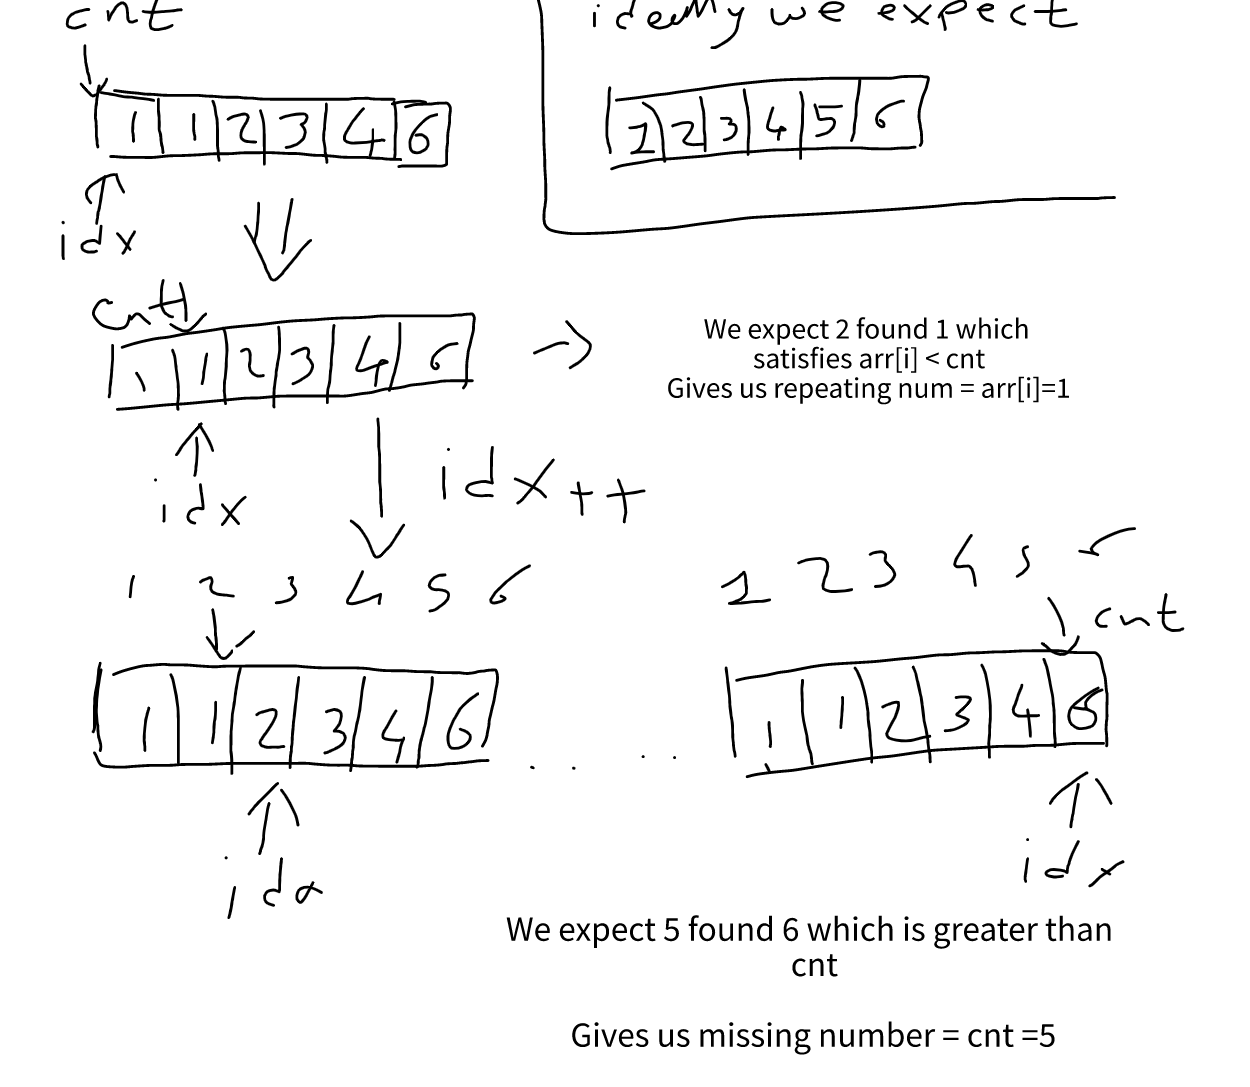 cnt
ideally we expect
1 1 2 3 4 6
1 2 3 4 5 6
idx
cnt
1 1 2 3 4 6
We expect 2 found 1 which
satisfies arr[i] < cnt
Gives us repeating num = arr[i]=1
idx
idx++
1 2 3 4 5 6
1 2 3 4 5 6
cnt
1 1 2 3 4 6
. . . .
1 1 2 3 4 6
idx
idx
We expect 5 found 6 which is greater than
cnt
Gives us missing number = cnt =5